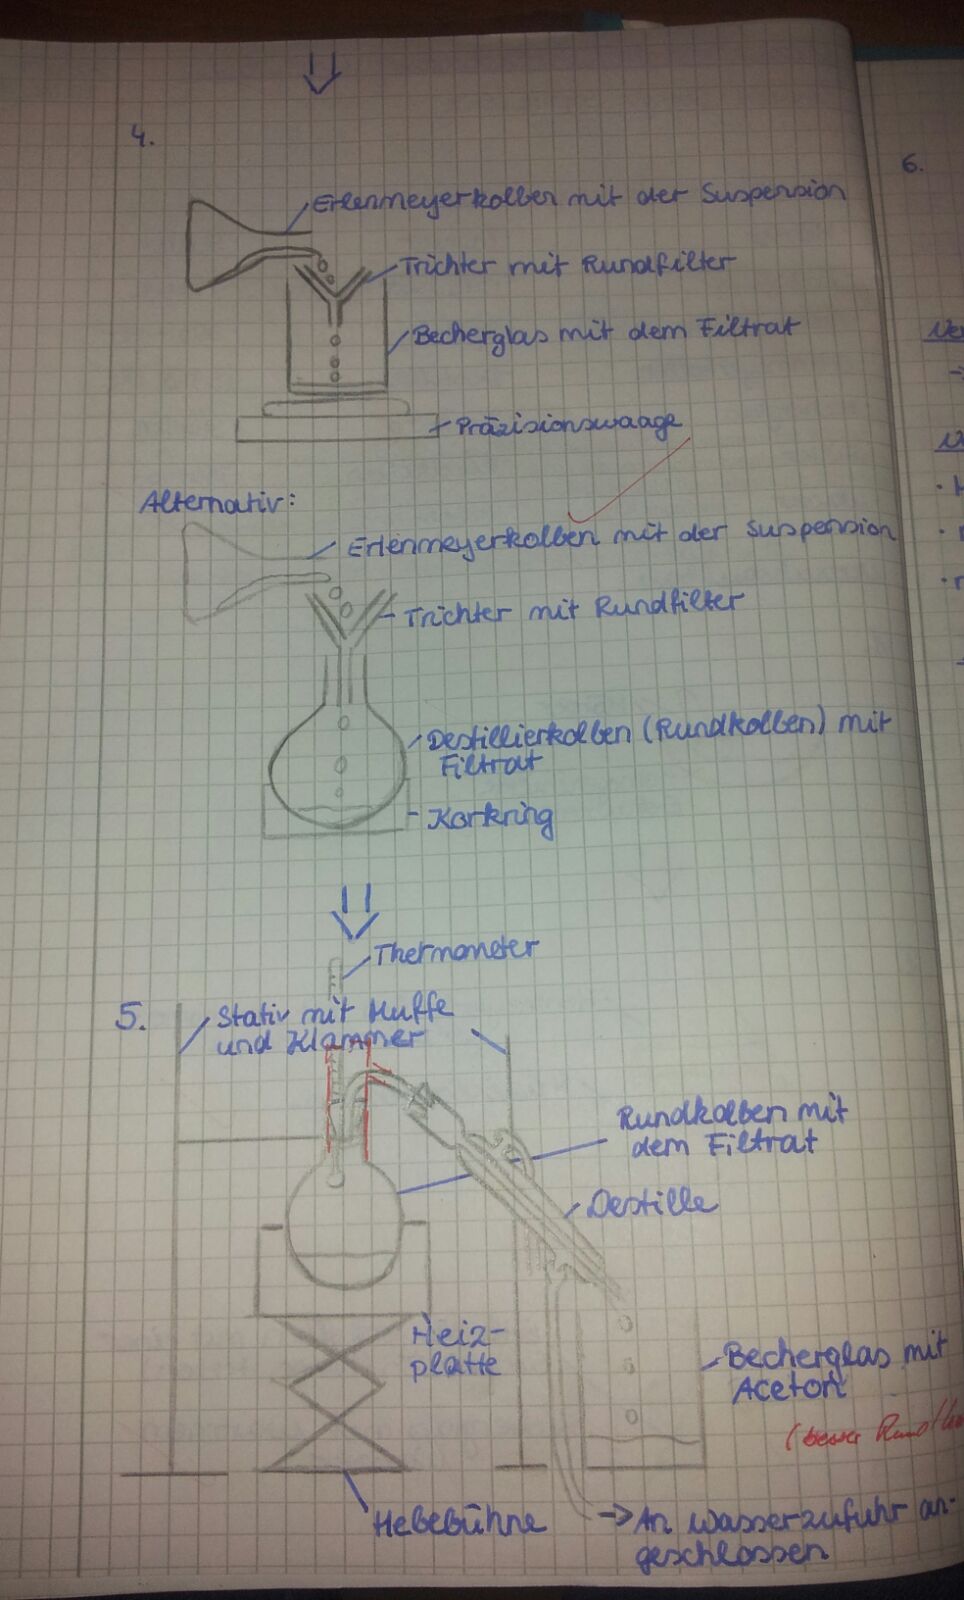 4.
Erlenmeyerkolben mit der Suspension
Trichter mit Rundfilter
Becherglas mit dem Filtrat
Präzisionswaage
Alternativ:
Erlenmeyerkolben mit der Suspension
Trichter mit Rundfilter
Destillierkolben (Rundkolben) mit
Filtrat
Korkring
Thermometer
5.
Stativ mit Muffe
und Klammer
Rundkolben mit
dem Filtrat
Destille
Heiz-
platte
Becherglas mit
Aceton
(besser
Hebebühne
→ An Wasserzufuhr an-
geschlossen
6.